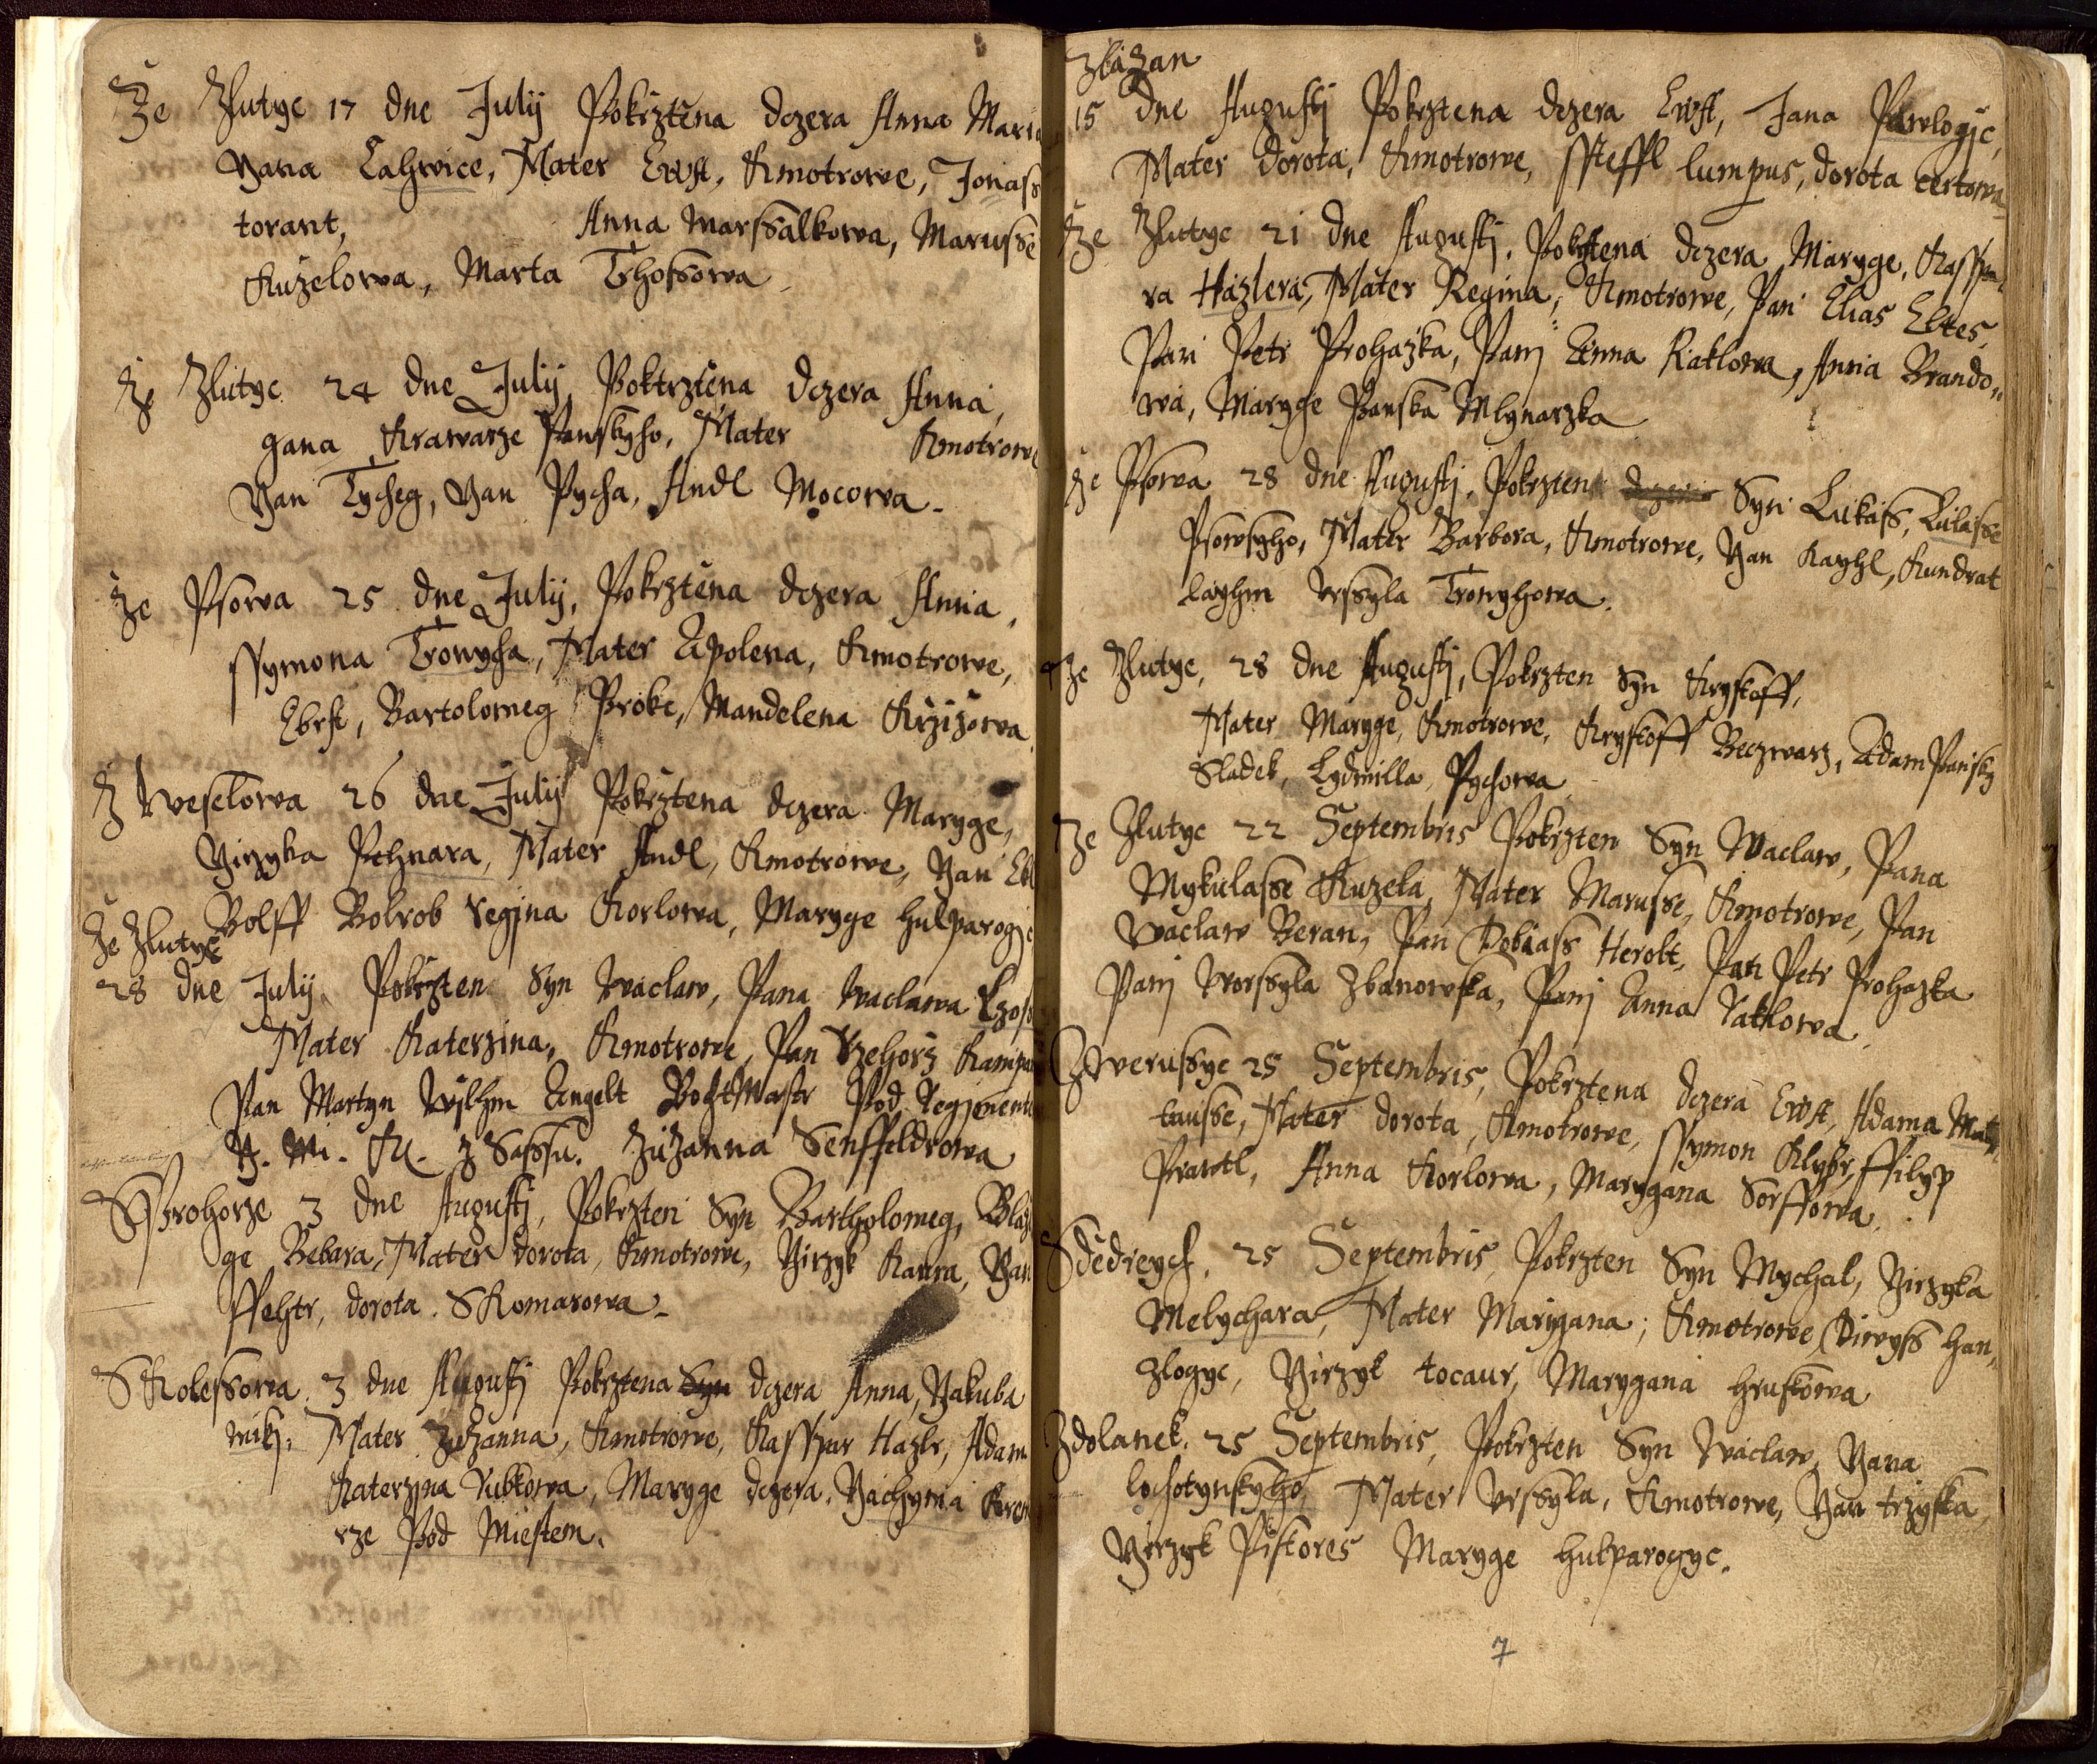 Ze Zlutyc 17 dne July Pokrztena dczera Anna Maria
Yana Calzwice, Mater Ewa, Kmotrowe, Jonass
torant, Anna Marssalkowa, Marusse
Kuzelowa, Marta Thossowa
Ze Zlutyc 24 dne July Poktrztena dczera Anna,
gana Krawarze Panskyho, Mater Kmotrowe
Yan Tycheg, Yan Pycha, Andl Mocowa.
Ze Psowa 25 dne July, Pokrztena dczera Anna,
Ssymona Tronycha, Mater Apolena, Kmotrowe,
Ebrst, Bartolomeg Prokc, Mandelena Krzizowa.
Z Weselowa 26 dne July Pokrztena dczera Maryge,
Yirzyka Pehnara, Mater Andl, Kmotrowe, Yan
Bolff Bolrob regina Korlowa, Maryge hulparogic
Ze Zlutyc
28 dne July Pokrzten Syn Waclaw, Pana Waclawa
Mater Katerzina, Kmotrowe, Pan Rzehorz
Pan Martyn Wylhm Engelt Wochtmastr Pod Regimente
Y. Mi. K. z Sassu. Zuzanna Senffeldrowa
S Prohorze 3 dne Augusti, Pokrzten Syn Bartholomeg, Blaz
ge Bebara, Mater dorota, Kmotrowe, Yirzyk Kanra, Yan
ffehtr, dorota SKomarowa.
S Kolessowa 3 dne Augusti Pokrztena Syn dczera Anna, Yakuba
wiki, Mater Zuzanna, Kmotrowe, Kasspar Hazlr, Adam
Katerzyna Rubkowa, Maryge dczera, Yachyma
rze Pod Miestem.
Zlazan
15 dne Augusti Pokrztena dczera Ewa, Jana Pawlogic,
Mater Dorota, Kmotrowe, Ssteffl lumpus, dorota certowa
Ze Zlutyc 21 dne Augusti, Pokrztena dczera Maryge, Kasspa
ra Hazlera, Mater Regina, Kmotrowe, Pan Elias Eltes,
Pan Petr Prohazka, Pani Anna Raklowa, Anna Brando-
wa, Maryge Panska Mlynarzka
Ze Psowa 28 dne Augusti, Pokrzten dczera Syn Lukass, Lukasse
Psowskyho, Mater Barbora, Kmotrowe, Yan Kayhl, Kundrat
layhm Vrssyla Tronyhowa.
Ze Zlutyc, 28 dne Augusti, Pokrzten Syn Krystoff,
Mater Maryge, Kmotrowe, Krystoff Beczwarz, Adam Pansky
Sladek, Lydmilla Pychowa
Ze Zlutyc 22 Septembris Pokrzten Syn Waclaw, Pana
Mykulasse Kuzela, Mater Marusse, Kmotrowe, Pan
Waclaw Beran, Pan Tobiass Herolt, Pan Petr Prohazka
Pani Worssyla Zbanowska, Pani Anna Raklowa
Z Werussyc 25 Septembris, Pokrztena dczera Ewa, Adama
tausse, Mater dorota, Kmotrowe, Ssymon Klybr, ffilyp
Prawtl, Anna Korlowa, Marygana Sorffowa.
S Stedreych, 25 Septembris, Pokrzten Syn Mychal, Yirzyka
Melychara, Mater Marygana, Kmotrowe Diwyss han-
zlogyc, Yirzyk tocaur, Marygana hruskowa
Zdolanek, 25 Septembris, Pokrzten Syn Waclaw, Yana
lochotynskyho, Mater Vrssyla, Kmotrowe, Yan trzyska,
Yirzyk Pistores Maryge hulparogyc.
7